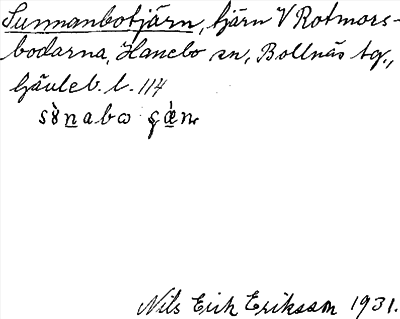 Sunnanbotjärn, tjärn V Rotmors-
bodarna, Hanebo sn, Bollnäs tg.,
Gävleb. l. 114
Nils Erik Eriksson 1931.